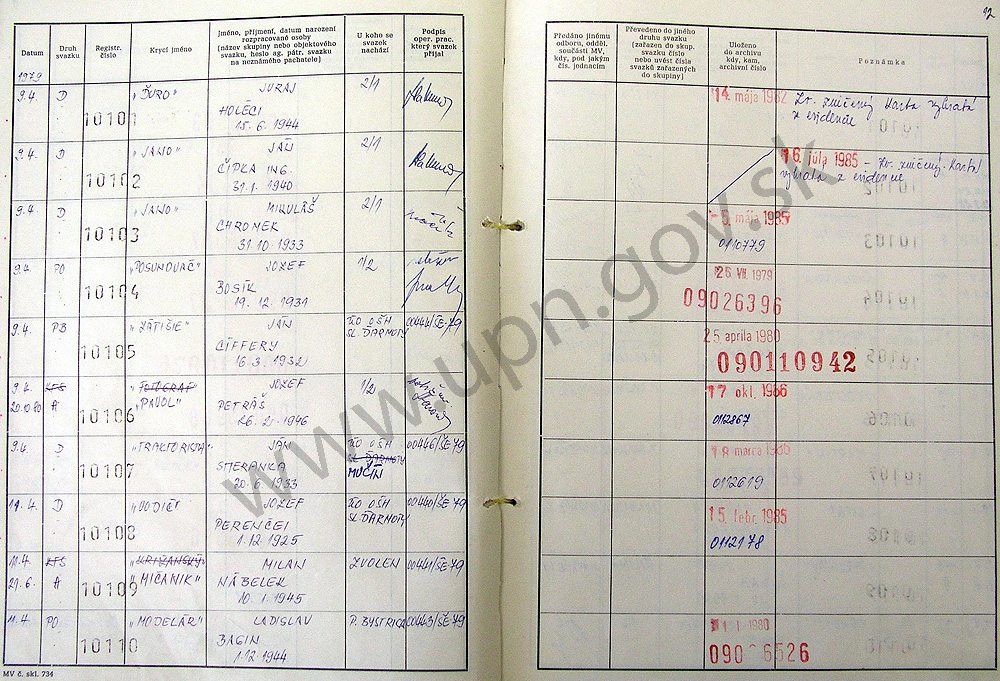 Datum
Druh svazku
Registr. číslo
Krycí jméno
Jméno, příjmení, datum narození
rozpracované osoby
(název skupiny nebo objektového
svazku, heslo ag. pátr. svazku
na neznámého pachatele)
U koho se svazek nachází
Podpis oper. prac. který svazek přijal
1979
9.4. D 10101 "ĎURO" JURAJ 2/1
HOLÉCI
15. 6. 1944
9.4. D 10102 "JANO" JÁN 2/1
ČIPKA ING.
31. 1. 1940
9.4. D 10103 "JANO" MIKULÁŠ 2/1
CHROMEK
31. 10. 1933
9.4. PO 10104 "POSUNOVAČ" JOZEF 1/2
BOSÍK
19. 12. 1931
9.4. PB 10105 "ZÁTIŠIE" JÁN ŽO OŠH 00444/ŠE-79
CIFFERY SL. ĎARMOTY
16. 3. 1932
9.4. KTS "FOTOGRAF" JOZEF 1/2
20.10.80 A 10106 "PAVOL" PETRÁŠ
26. 2. 1946
9.4. D 10107 "TRAKTORISTA" JÁN ŽO OŠH 00446/ŠE 79
SL. ĎARMOTY
SMERANKA MUČÍN
20. 6. 1933
11.4. D 10108 "VODIČ" JOZEF ŽO OŠH 00440/ŠE 79
SL. ĎARMOTY
PERENČEI
1. 12. 1925
11.4. KTS "KRIŽANSKÝ" MILAN ZVOLEN 00441/ŠE 79
21.6. A 10109 "MICANIK" NÁBELEK
10. 1. 1945
11.4. PO 10110 "MODELÁR" LADISLAV P. BYSTRICA 00443/ŠE 79
BAGIN
1. 12. 1944
MV č. skl. 734
92
Předáno jinému
odboru, odděl.
součásti MV,
kdy, pod jakým
čís. jednacím
Převedeno do jiného
druhu svazku
(zařazen do skup.
svazku číslo
nebo uvést čísla
svazků zařazených
do skupiny)
Uloženo
do archivu
kdy, kam,
archivní číslo
Poznámka
14. mája 1982 Zv. zničený karta vybratá
z evidencie
16. júla 1985 - Zv. zničený. Karta
vybratá z evidencie
-6. mája 1985
0110779
26 VII 1979
09026396
25 apríla 1980
090110942
17 okt. 1986
0112867
18 marca 1985
0112619
15. febr. 1985
0112178
1980
0906526
www.upn.gov.sk